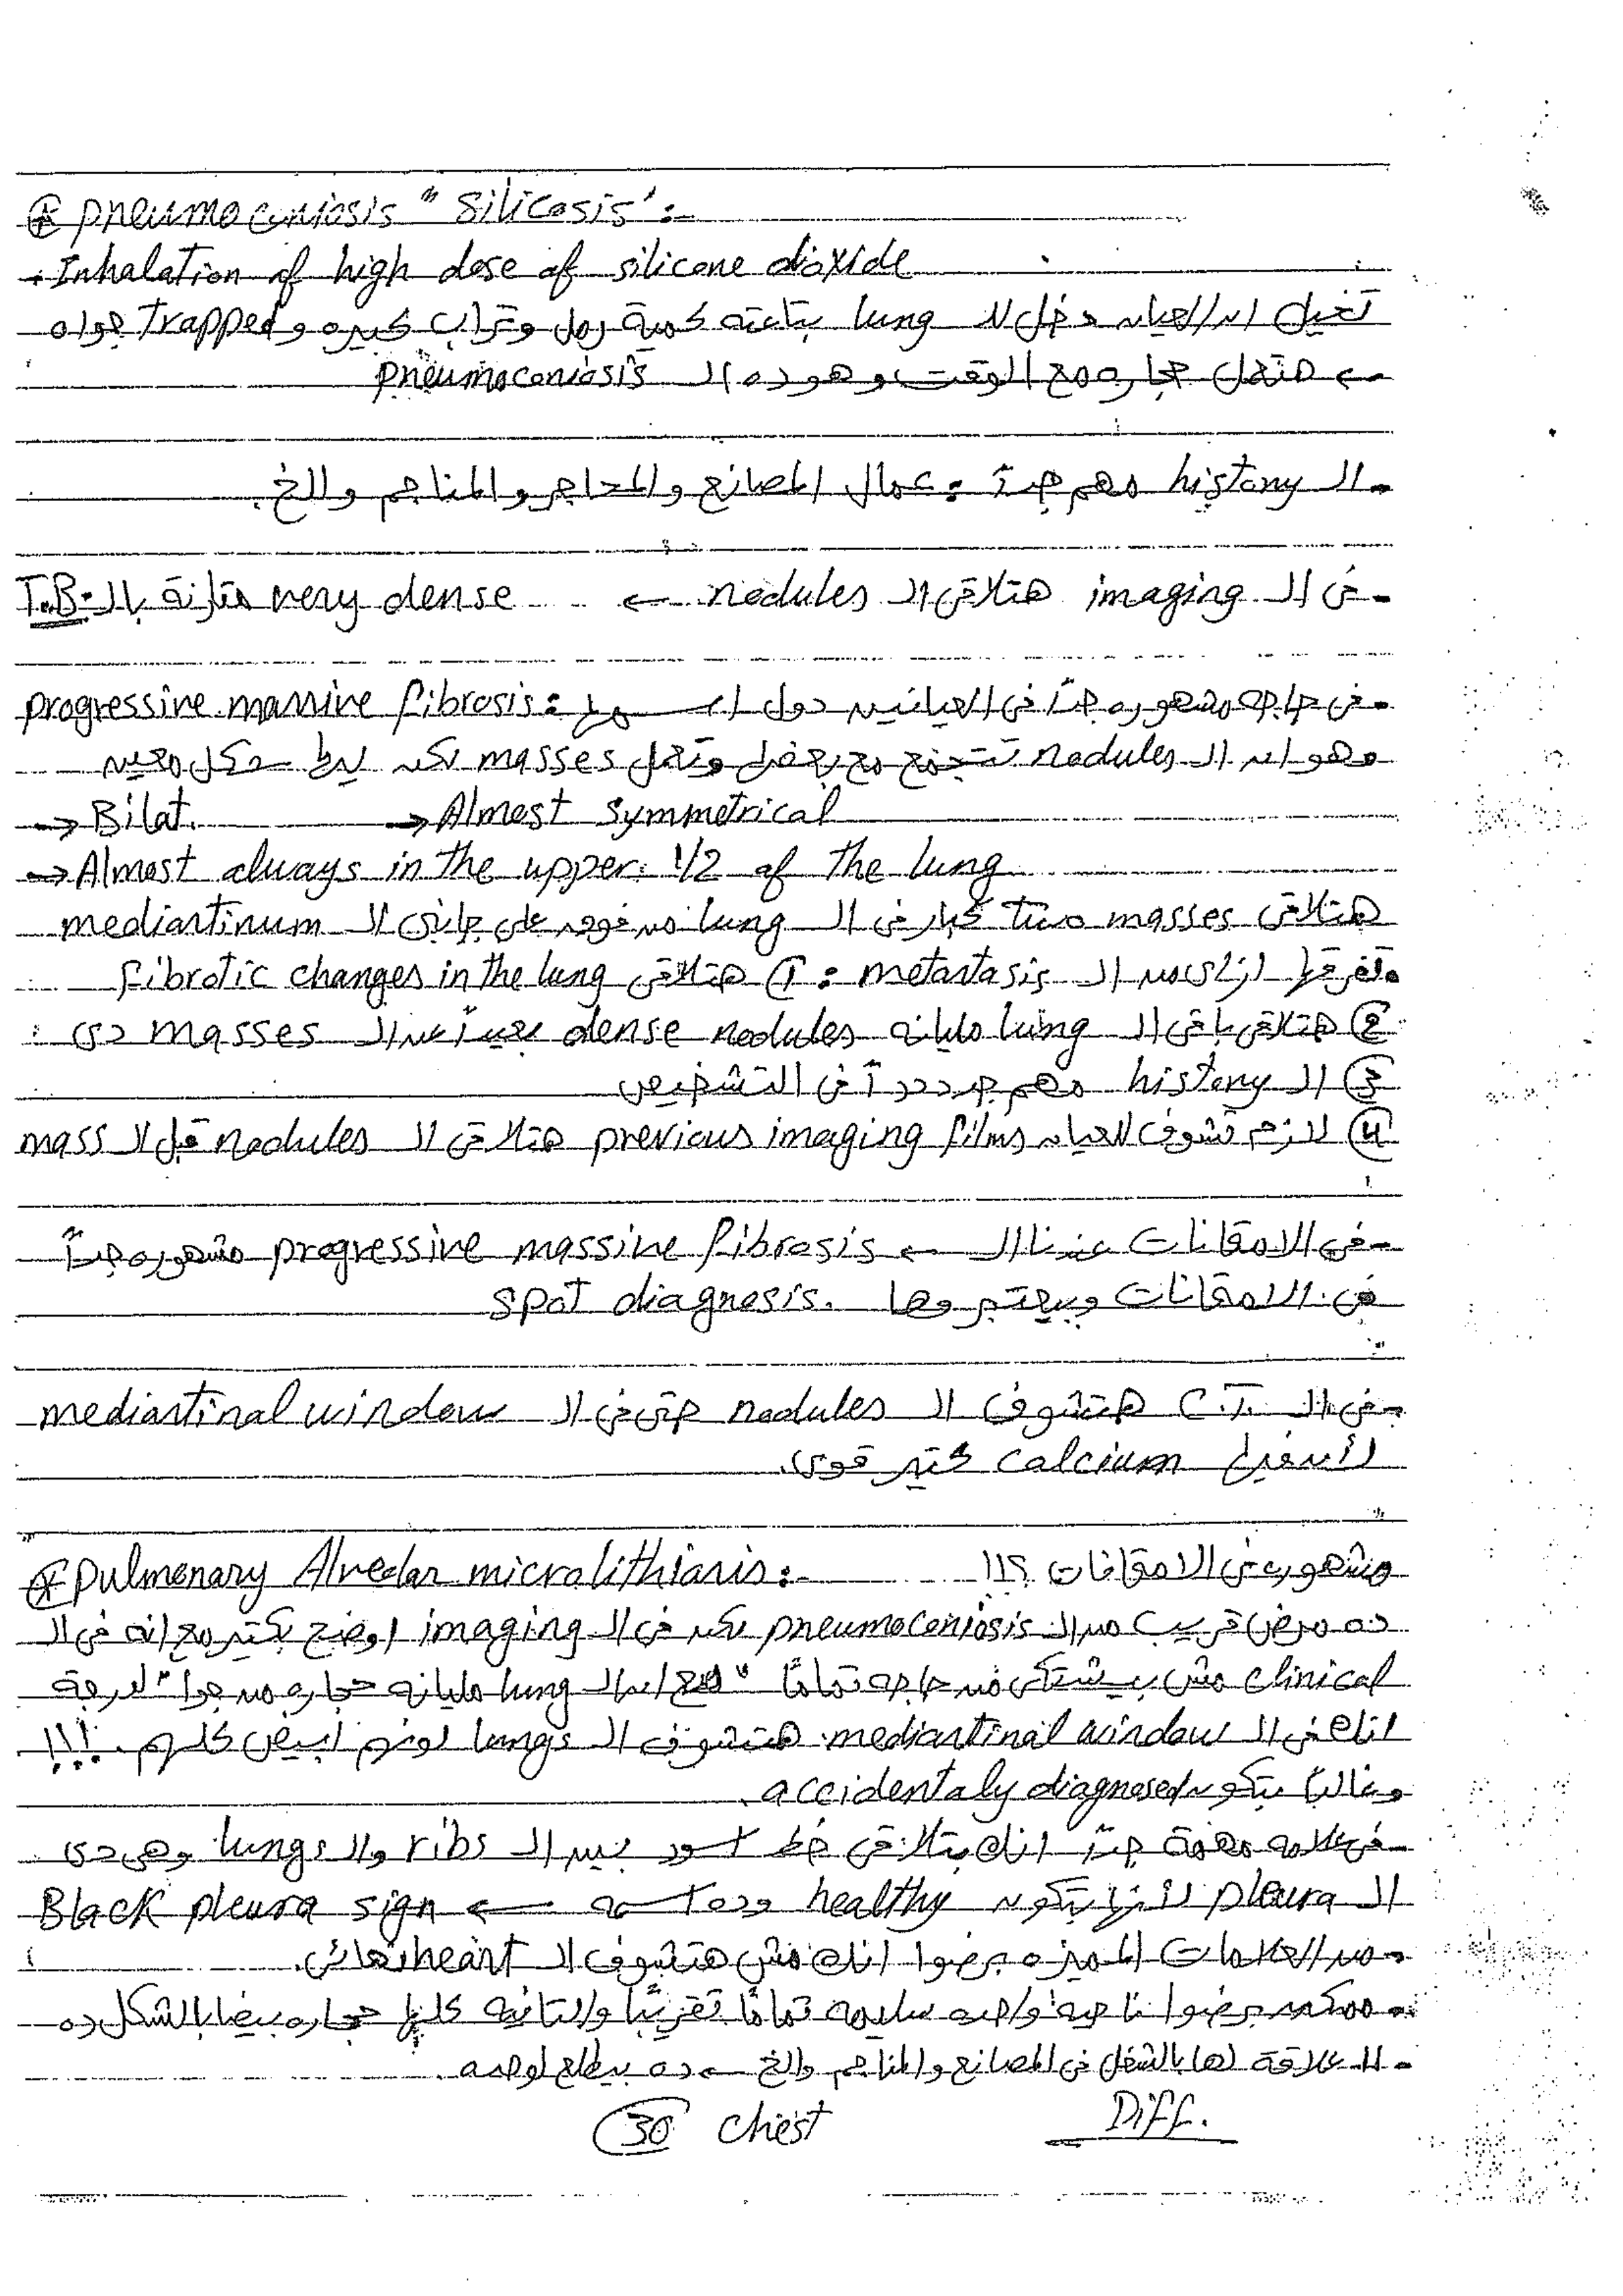 * pneumoconiosis "Silicosis":-
- Inhalation of high dose of silicone dioxide
تخيل ان العيان دخل لل lung بتاعته كمية رمل وتراب كبيره و Trapped جواه
← هتعمل حجاره مع الوقت وهو ده ال pneumoconiosis
- ال history مهم جداً : عمال المصانع والمحاجر والمناجم والخ.
- في ال imaging هتلاقي ال nodules ← very dense مقارنة بال T.B.
- في حاجه مشهوره جداً في العيانين دول اسمها : progressive massive fibrosis
وهو ان ال nodules تتجمع مع بعض وتعمل masses لكن ليها شكل معين
→ Bilat. → Almost symmetrical
→ Almost always in the upper 1/2 of the lung
هتلاقي masses كبار في ال lung من فوق على جانبي ال mediastinum
- تفرقها ازاي من ال metastasis : ① هتلاقي fibrotic changes in the lung
② هتلاقي باقي ال lung مليانه dense nodules بعيداً عن ال masses دي
③ ال history مهم جدددداً في التشخيص
④ لازم تشوف للعيان previous imaging films هتلاقي ال nodules قبل ال mass
- في الامتحانات عندنا ال ← progressive massive fibrosis مشهوره جداً
في الامتحانات وبيعتبروها spot diagnosis.
- في ال C.T. هتشوف ال nodules حتى في ال mediastinal window
لأن فيها calcium كتير قوي.
* Pulmonary Alveolar microlithiasis:- مشهوره في الامتحانات ؟!!
ده مرض قريب من ال pneumoconiosis لكن في ال imaging اوضح بكتير مع انه في ال
clinical مش بيشتكي من حاجه تماماً "مع ان ال lung مليانه حجاره من جوا" لدرجة
انك في ال mediastinal window هتشوف ال lungs لونهم ابيض كلهم. !!!
وغالباً بتكون accidentaly diagnosed.
- في علامه مهمة جداً انك بتلاقي خط اسود بين ال ribs وال lungs وهي دي
ال pleura لأنها بتكون healthy وده اسمه ← Black pleura sign
- من العلامات المميزه برضوا انك مش هتشوف ال heart نهائي.
- ممكن برضوا ناحيه واحده سليمه تماماً تقريباً والتانيه كلها حجاره بيضا بالشكل ده
- لا علاقة لها بالشغل في المصانع والمناجم والخ ← ده بيطلع لوحده.
Diff.
30 Chest